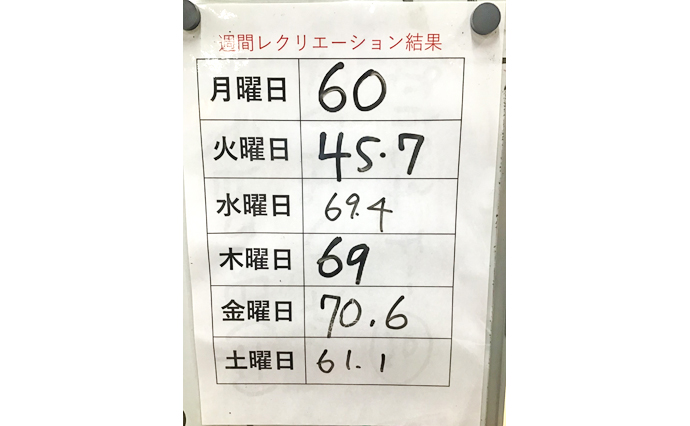 週間レクリエーション結果
月曜日 60
火曜日 45.7
水曜日 69.4
木曜日 69
金曜日 70.6
土曜日 61.1